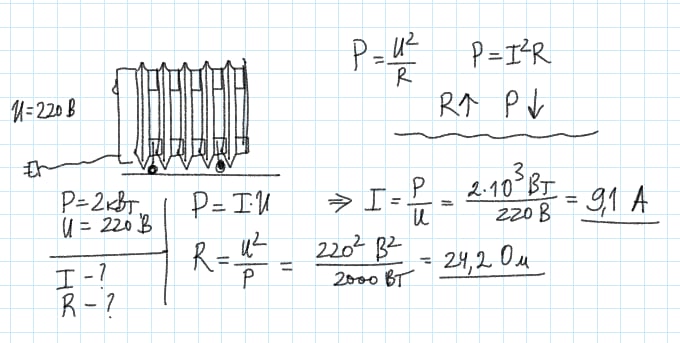 P = U²/R P = I²R
R↑ P↓
U = 220 В
P = 2 кВт
U = 220 В
I - ?
R - ?
P = I·U ⇒ I = P/U = 2·10³ Вт/220 В = 9,1 А
R = U²/P = 220² В²/2000 Вт = 24,2 Ом